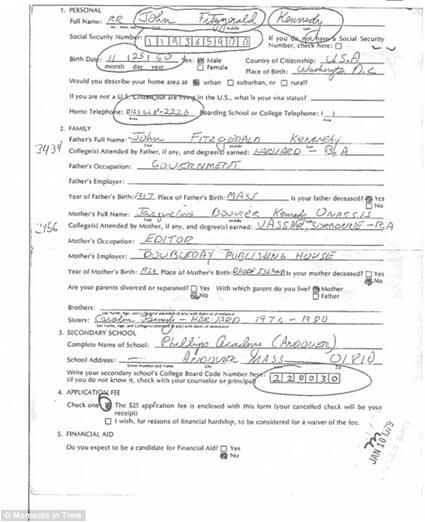 1. PERSONAL
Full Name: John Fitzgerald Kennedy
Last First Middle
Social Security Number: If you do not have a Social Security
Number, check here:
Birth Date: 11 25 60 Sex: Male Country of Citizenship: U.S.A
month day year Female Place of Birth: Washington D.C
Would you describe your home area as urban suburban, or rural?
If you are not a U.S. Citizen but are living in the U.S., what is your visa status?
Home Telephone: Boarding School or College Telephone: ( )
Area
2. FAMILY
Father's Full Name: John FITZGERALD Kennedy
3434 College(s) Attended by Father, if any, and degree(s) earned: HARVARD - B, A
Father's Occupation: GOVERNMENT
Father's Employer:
Year of Father's Birth: 1917 Place of Father's Birth: MASS Is your father deceased? Yes
No
Mother's Full Name: Jacqueline BOUVIER Kennedy ONASSIS
College(s) Attended by Mother, if any, and degree(s) earned: VASSAR, SORBONNE - B, A
Mother's Occupation: EDITOR
Mother's Employer: DOUBLEDAY PUBLISHING HOUSE
Year of Mother's Birth: Place of Mother's Birth: RHODE ISLAND Is your mother deceased? Yes
No
Are your parents divorced or separated? Yes With which parent do you live? Mother
No Father
Brothers:
Sisters: Caroline Kennedy - HARVARD 1976 - 1980
3. SECONDARY SCHOOL
Complete Name of School: Phillips Academy (ANDOVER)
School Address - ANDOVER MASS - 01810
Write your secondary school's College Board Code Number here: 220030
(if you do not know it, check with your counselor or principal)
4. APPLICATION FEE
Check one: The $25 application fee is enclosed with this form (your cancelled check will be your
receipt)
I wish, for reasons of financial hardship, to be considered for a waiver of the fee.
5. FINANCIAL AID
Do you expect to be a candidate for Financial Aid? Yes
No
JAN 10 1979
© Moments in Time